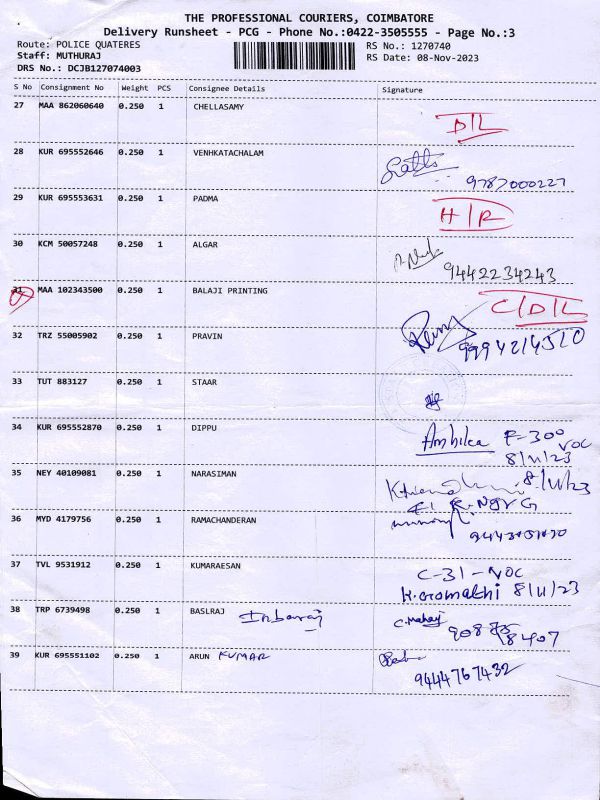 THE PROFESSIONAL COURIERS, COIMBATORE
Delivery Runsheet - PCG - Phone No.:0422-3505555 - Page No.:3
Route: POLICE QUATERES
Staff: MUTHURAJ
DRS No.: DCJB127074003
RS No.: 1270740
RS Date: 08-Nov-2023
S No Consignment No Weight PCS Consignee Details Signature
27 MAA 862060640 0.250 1 CHELLASAMY
D/L
28 KUR 695552646 0.250 1 VENHKATACHALAM
9787000227
29 KUR 695553631 0.250 1 PADMA
H/R
30 KCM 50057248 0.250 1 ALGAR
9442234243
31 MAA 102343500 0.250 1 BALAJI PRINTING
C/D/L
32 TRZ 55005902 0.250 1 PRAVIN
9994214510
33 TUT 883127 0.250 1 STAAR
34 KUR 695552870 0.250 1 DIPPU
Ambika F-300
VOC
8/11/23
35 NEY 40109081 0.250 1 NARASIMAN
8/11/23
36 MYD 4179756 0.250 1 RAMACHANDERAN
37 TVL 9531912 0.250 1 KUMARAESAN
C-31-VOC
K.Gomathi 8/11/23
38 TRP 6739498 0.250 1 BASLRAJ Inbaraj
39 KUR 695551102 0.250 1 ARUN KUMAR
9444767432